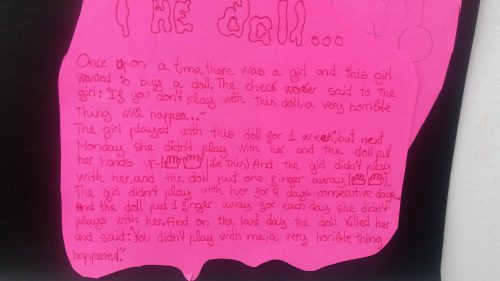 THE doll...
Once upon a time, there was a girl and this girl
wanted to buy a doll. The check worker said to the
girl: "If you don't play with this doll, a very horrible
thing will happen..."
The girl played with this doll for 1 week, but next
Monday she didn't play with her and the doll put
her hands up( like this) And the girl didn't play
with her, and the doll put one finger away( ).
The girl didn't play with her for 9 days consecutive days...
and the doll put 1 finger away for each day she didn't
plays with her. And on the last day the doll killed her
and said: "You didn't play with me, a very horrible thing
happened."